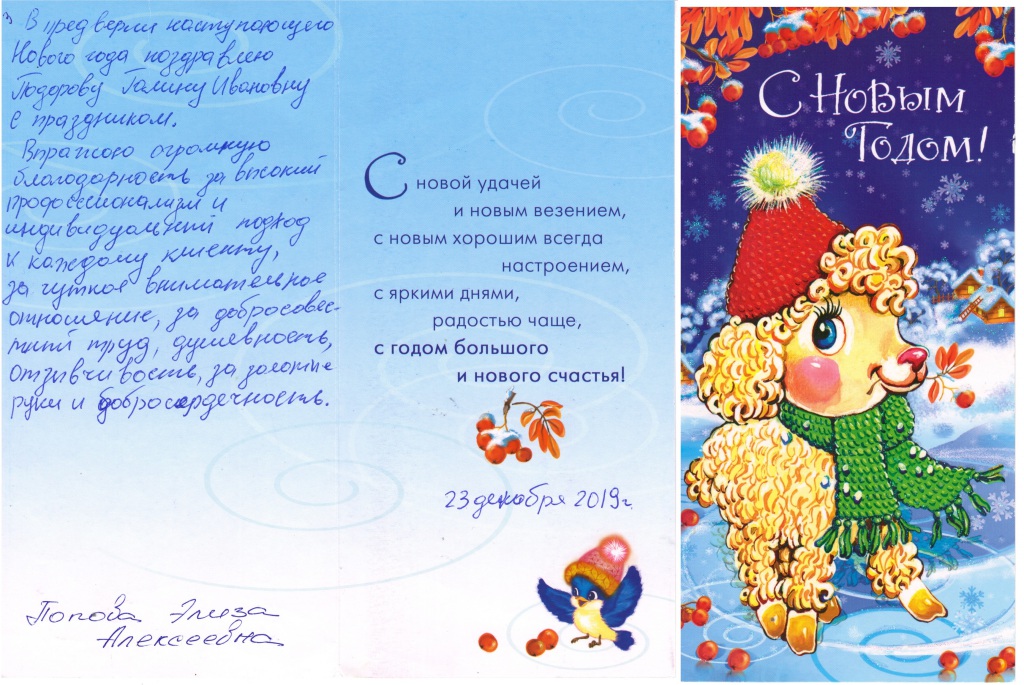 В предверии наступающего
Нового года поздравляю
Тодорову Галину Ивановну
с праздником.
Выражаю огромную
благодарность за высокий
профессионализм и
индивидуальный подход
к каждому клиенту,
за чуткое внимательное
отношение, за добросовес-
тный труд, душевность,
отзывчивость, за золотые
руки и добросердечность.
Попова Элиза
Алексеевна
С новой удачей
и новым везением,
с новым хорошим всегда
настроением,
с яркими днями,
радостью чаще,
с годом большого
и нового счастья!
23 декабря 2019г.
С Новым
Годом!